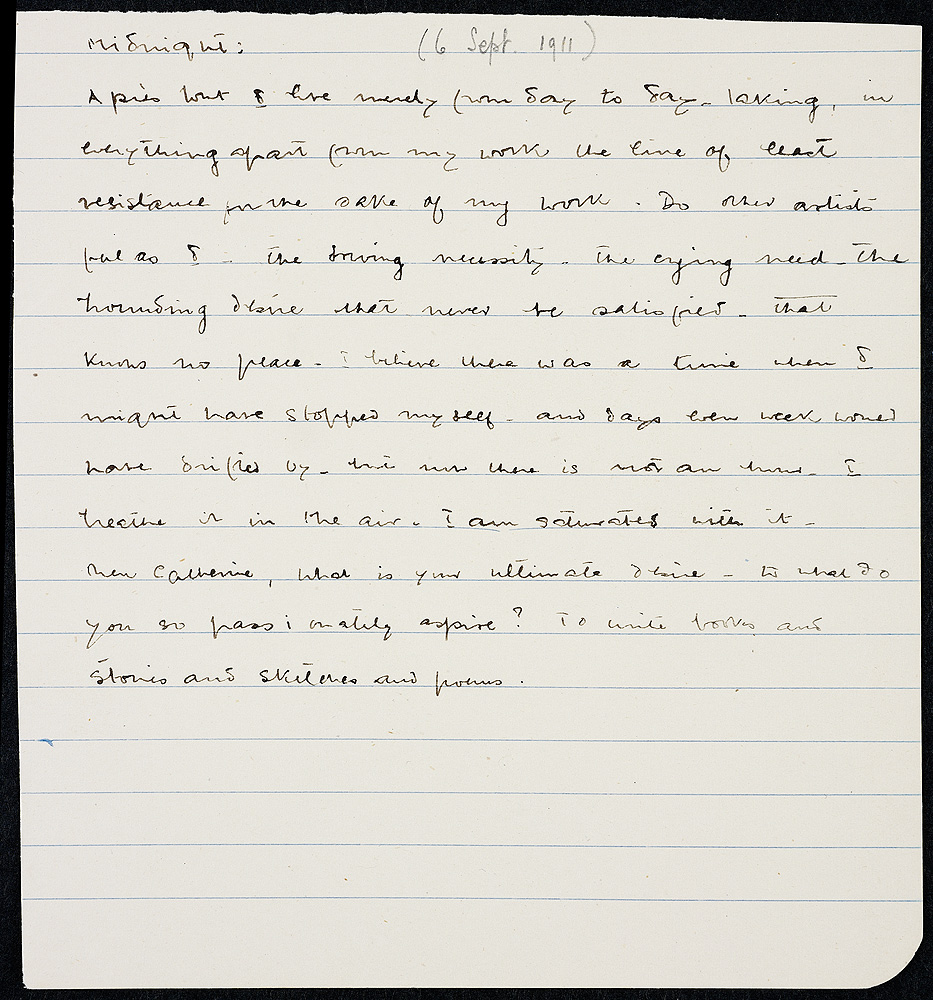 Midnight: (6 Sept. 1911)
Après tout I live merely from day to day - taking, in
everything apart from my work the line of least
resistance for the sake of my work. Do other artists
feel as I - the driving necessity - the crying need - the
hounding desire that never be satisfied - that
knows no peace - I believe there was a time when I
might have stopped myself - and days even week would
have drifted by - but now there is not an hour - I
breathe it in the air. I am saturated with it -
Then Catherine, what is your ultimate desire - to what do
you so passionately aspire? To write books and
stories and sketches and poems.